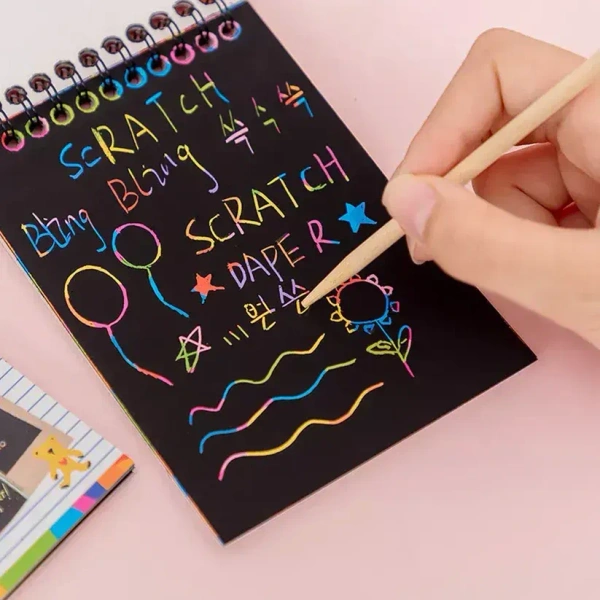 SCRATCH 쓱 슥 쓱
Bling Bling
SCRATCH
DAPER